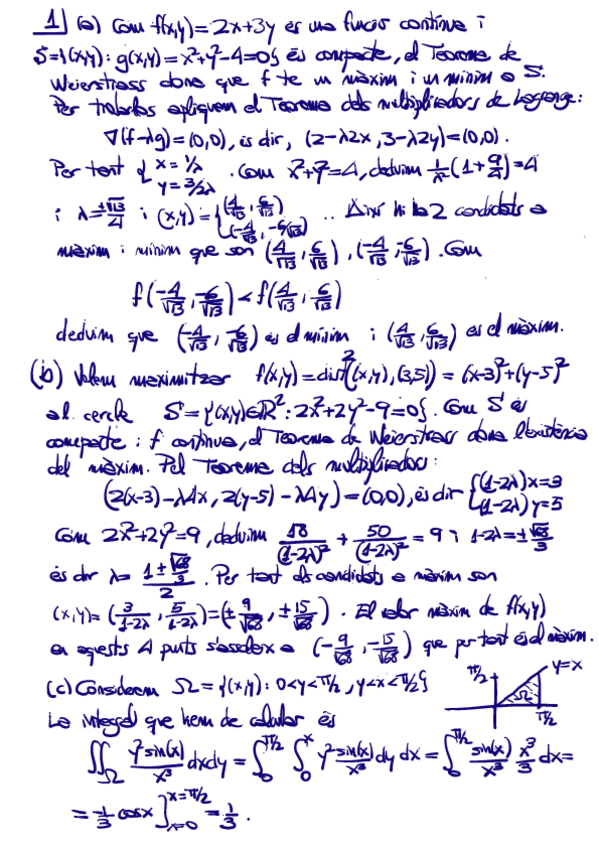 1 (a) Com f(x,y) = 2x+3y és una funció contínua i
S = {(x,y): g(x,y) = x²+y²-4=0} és compacte, el Teorema de
Weierstrass dona que f te un màxim i un mínim a S.
Per trobarlos apliquem el Teorema dels multiplicadors de Lagrange:
∇(f-λg) = (0,0), és dir, (2-λ2x, 3-λ2y) = (0,0).
Per tant { x = 1/λ, y = 3/2λ . Com x²+y²=4, deduim 1/λ² (1+9/4) = 4
i λ = ±√13/4 i (x,y) = { (4/√13, 6/√13), (-4/√13, -6/√13) .. Així hi ha 2 candidats a
màxim i mínim que son (4/√13, 6/√13), (-4/√13, -6/√13). Com
f(-4/√13, -6/√13) < f(4/√13, 6/√13)
deduim que (-4/√13, -6/√13) és el mínim i (4/√13, 6/√13) és el màxim.
(b) Volem maximitzar f(x,y) = dist²((x,y),(3,5)) = (x-3)²+(y-5)²
al cercle S = {(x,y)∈ℝ²: 2x²+2y²-9=0}. Com S és
compacte i f contínua, el Teorema de Weierstrass dona l'existència
del màxim. Pel Teorema dels multiplicadors:
(2(x-3)-λ4x, 2(y-5)-λ4y) = (0,0), és dir { (1-2λ)x=3, (1-2λ)y=5
Com 2x²+2y²=9, deduim 18/(1-2λ)² + 50/(1-2λ)² = 9 i 1-2λ = ±√68/3
és dir λ = (1±√68/3)/2. Per tant els candidats a màxim son
(x,y) = (3/1-2λ, 5/1-2λ) = (±9/√68, ±15/√68). El valor màxim de f(x,y)
en aquests 4 punts s'assoleix a (-9/√68, -15/√68) que per tant és el màxim.
(c) Considerem Ω = {(x,y): 0<y<π/2, y<x<π/2}
π/2 y=x Ω π/2
La integral que hem de calcular és
∬_Ω y² sin(x)/x³ dxdy = ∫₀^{π/2} ∫₀^x y² sin(x)/x³ dy dx = ∫₀^{π/2} sin(x)/x³ x³/3 dx =
= -1/3 cosx ]_{x=0}^{x=π/2} = 1/3.